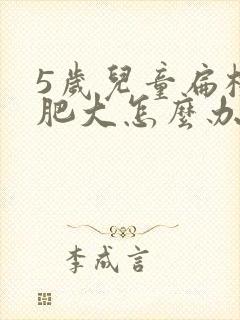 5歲兒童扁桃
肥大怎麼办
李成言